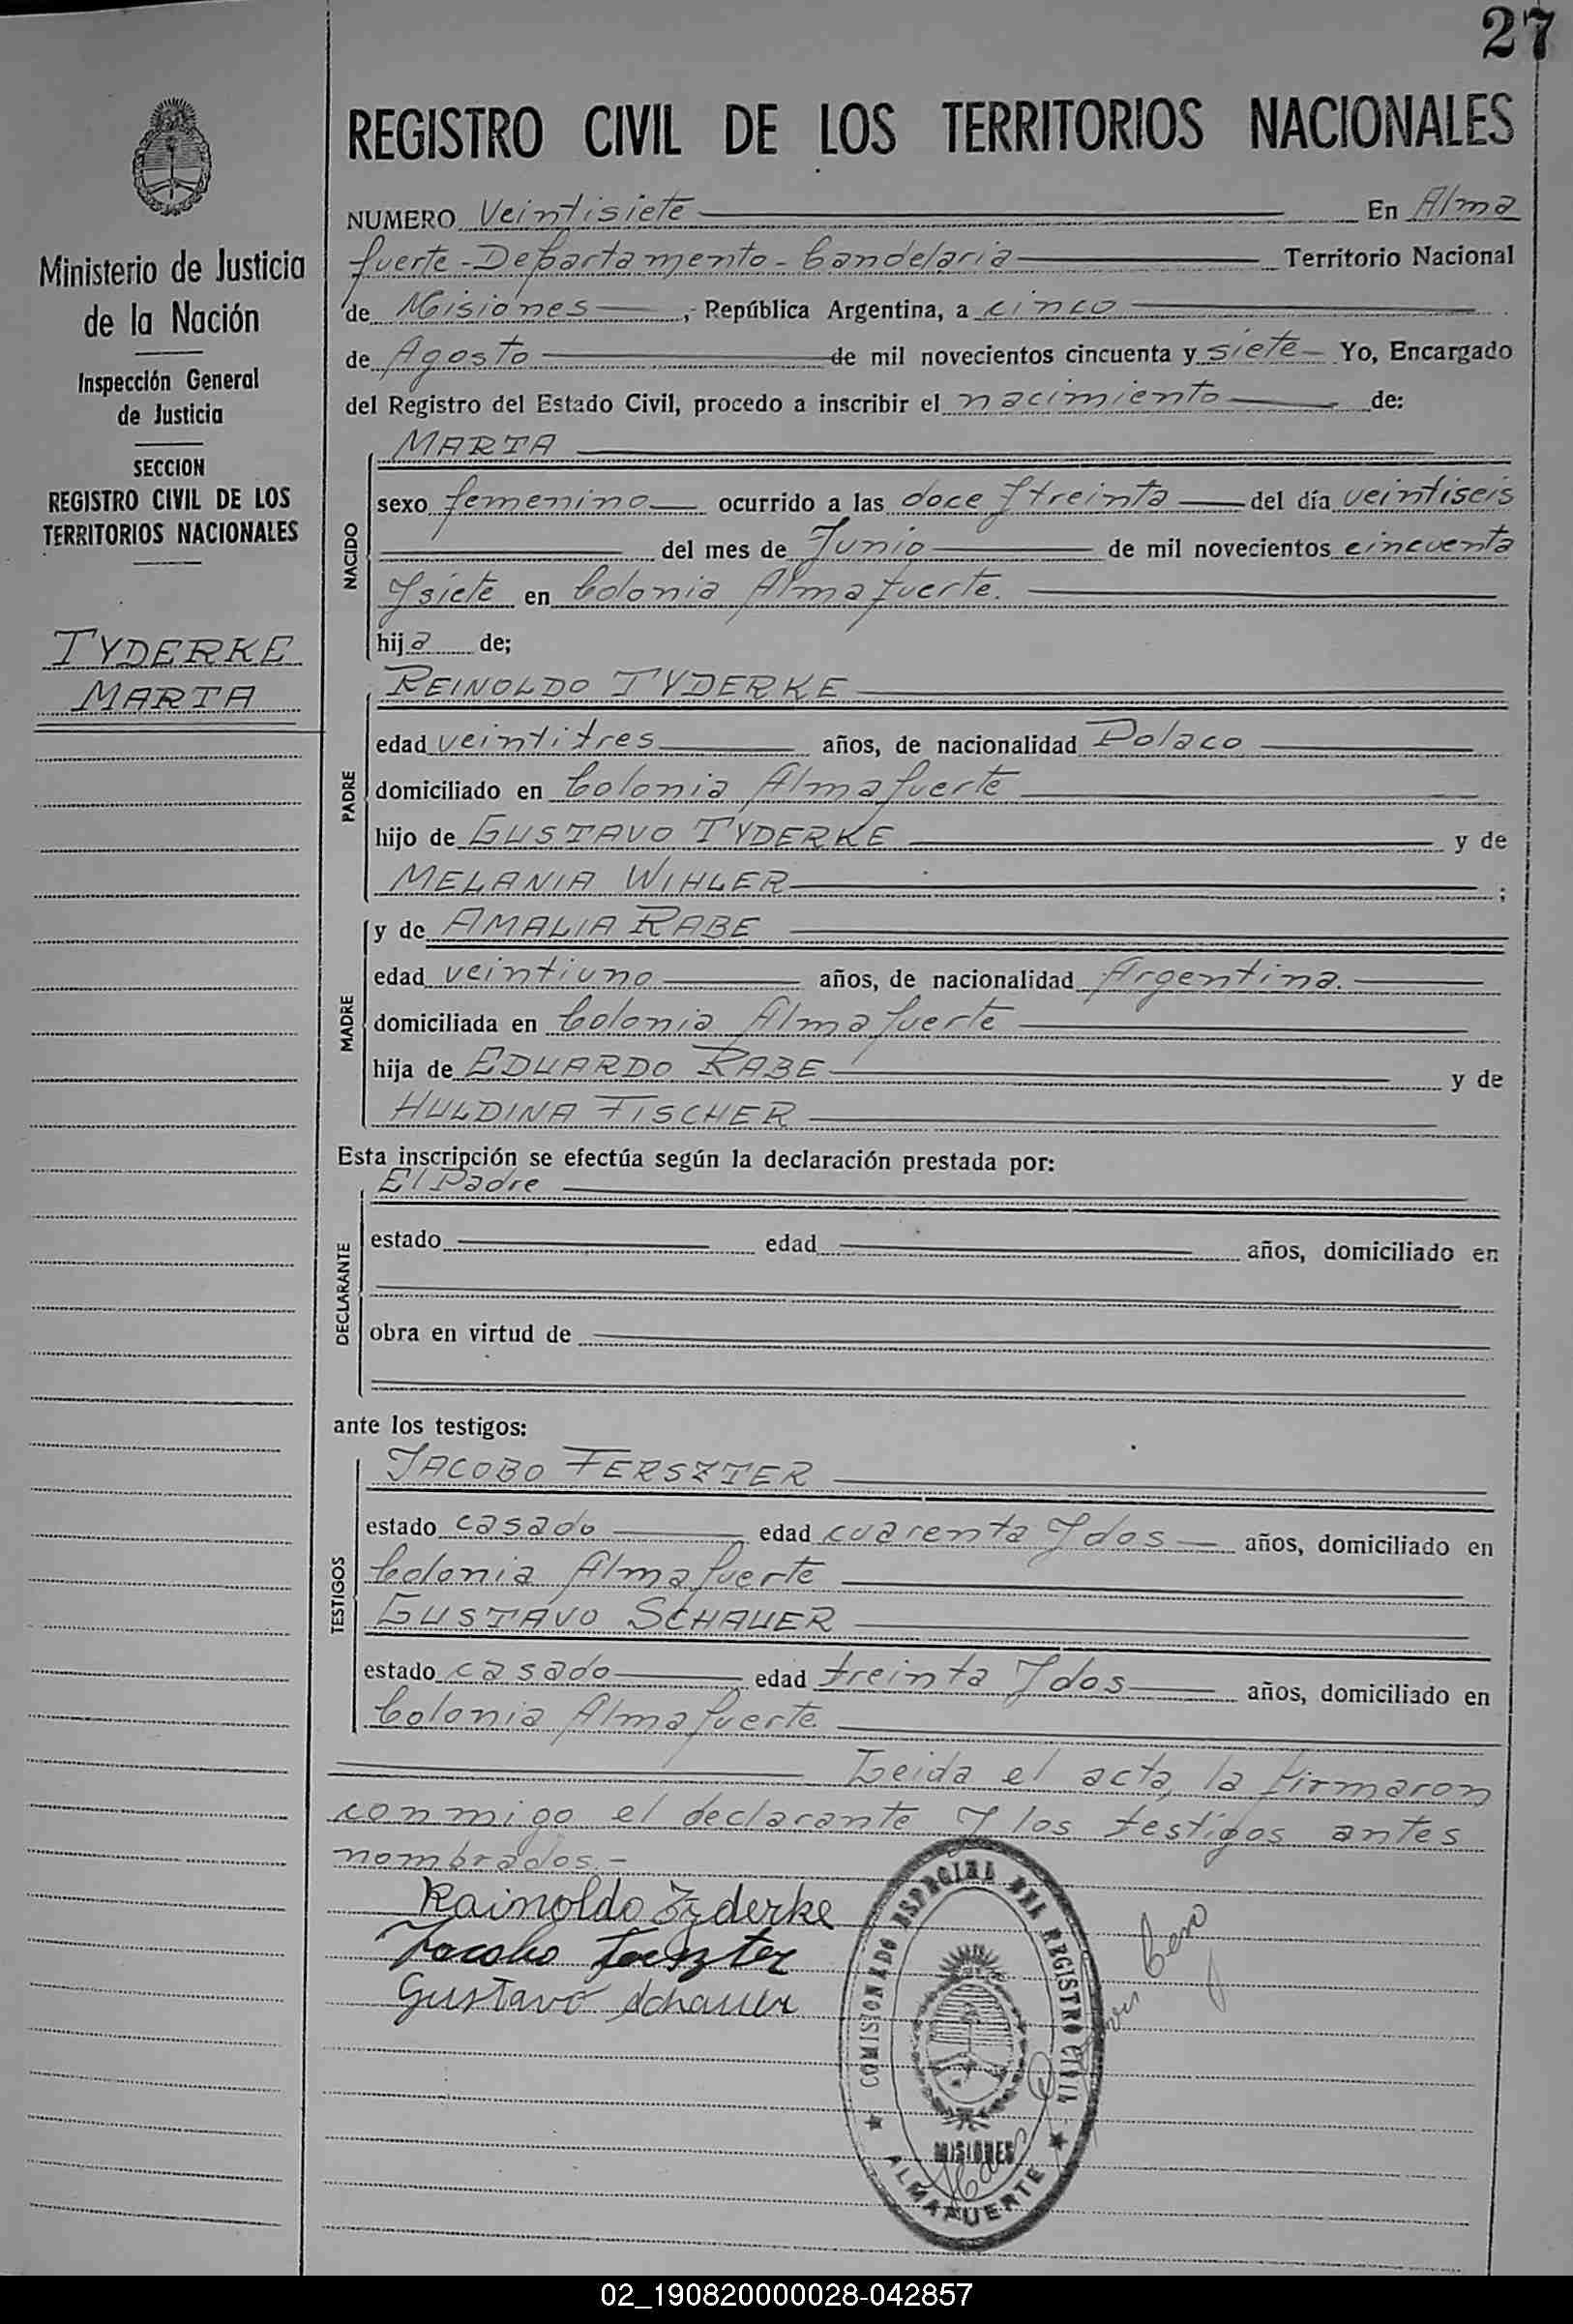 27
REGISTRO CIVIL DE LOS TERRITORIOS NACIONALES
Ministerio de Justicia
de la Nación
Inspección General
de Justicia
SECCION
REGISTRO CIVIL DE LOS
TERRITORIOS NACIONALES
TYDERKE
MARTA
NUMERO Veintisiete En Alma
fuerte - Departamento - Candelaria Territorio Nacional
de Misiones, República Argentina, a cinco
de Agosto de mil novecientos cincuenta y siete Yo, Encargado
del Registro del Estado Civil, procedo a inscribir el nacimiento de:
NACIDO
MARTA
sexo femenino ocurrido a las doce y treinta del día veintiseis
del mes de Junio de mil novecientos cincuenta
y siete en Colonia Almafuerte.
hija de;
PADRE
REINOLDO TYDERKE
edad veintitres años, de nacionalidad Polaco
domiciliado en Colonia Almafuerte
hijo de GUSTAVO TYDERKE y de
MELANIA WIHLER ;
MADRE
y de AMALIA RABE
edad veintiuno años, de nacionalidad Argentina.
domiciliada en Colonia Almafuerte
hija de EDUARDO RABE y de
HULDINA FISCHER
Esta inscripción se efectúa según la declaración prestada por:
DECLARANTE
El Padre
estado edad años, domiciliado en
obra en virtud de
ante los testigos:
TESTIGOS
JACOBO FERSZTER
estado casado edad cuarenta y dos años, domiciliado en
Colonia Almafuerte
GUSTAVO SCHAUER
estado casado edad treinta y dos años, domiciliado en
Colonia Almafuerte.
Leida el acta, la firmaron
conmigo el declarante y los testigos antes
nombrados.-
Rainoldo Tyderke
Jacobo Ferszter
Gustavo Schauer
COMISIONADO ESPECIAL DEL REGISTRO CIVIL
MISIONES
ALMAFUERTE
02_190820000028-042857